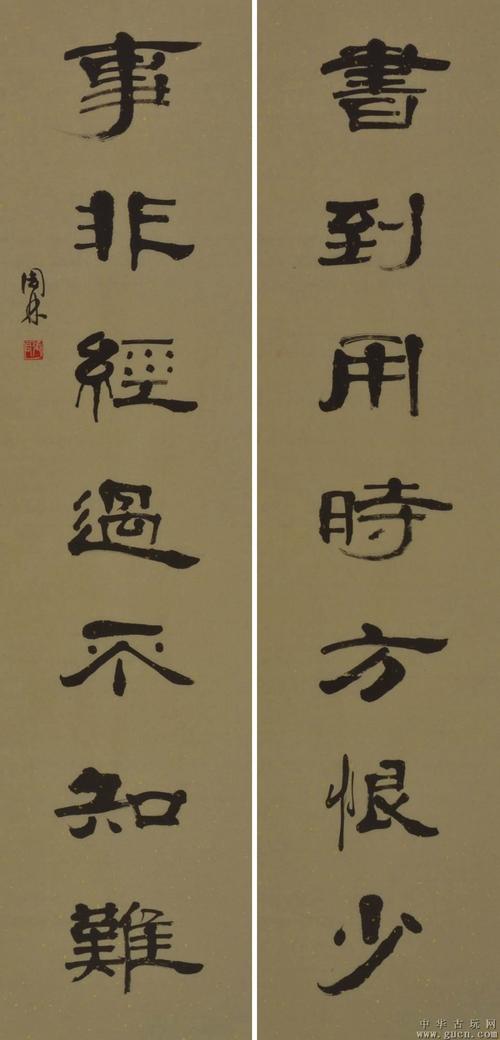 書到用時方恨少
事非經過不知難
周林
中华古玩网
www.gucn.com